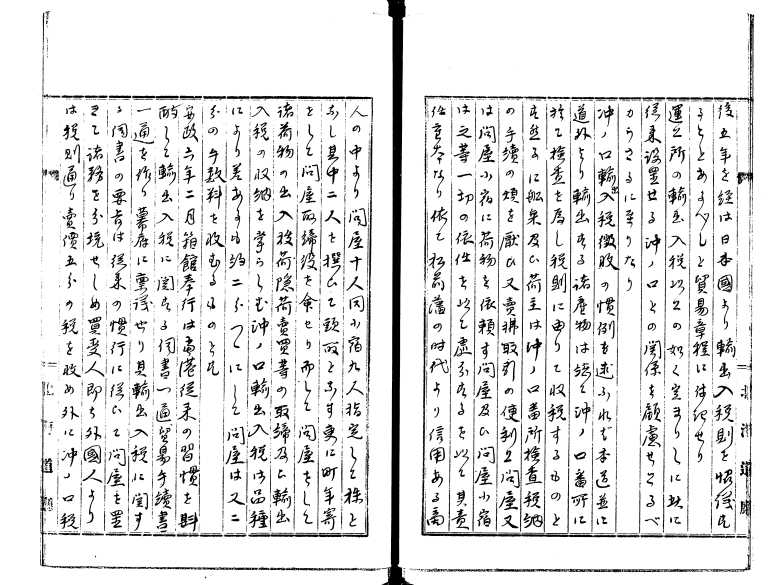 後五年を経は日本國より輸出入税則を恪議す
ることあるべしと貿易章程に併記せり
運上所の輸出入税以上の如く定まりしに然に
従来設置せる沖ノ口との関係を顧慮せさるべ
からさるに至りたり
沖ノ口輸出入税徴収の慣例を述ふれば本道並に
道外より輸出する諸産物は総て沖ノ口番所に
於て検査を為し税則に由りて収税するものと
す然るに船乗及ひ荷主は沖ノ口番所検査税納
の手續の煩を厭ひ又賣捌取引の便利上問屋又
は問屋小宿に荷物を依頼す問屋及ひ小宿
は之等一切の依任を以て虚なるを以て其責
任重大なり依て松前藩の時代より信用ある商
人の中より問屋十人同小宿九人指定して株と
なし其中二人を撰ひて頭取となす更に町年寄
をして問屋取締役を命せり而して問屋をして
諸荷物の出入移荷隠荷賣買等の取締及ひ輸出
入税の収納を掌らしむ沖ノ口輸出入税は品種
により差あるも約二分つゝにして問屋は又二
分の手数料を収むるものとす
安政六年二月箱館奉行は当港従来の習慣を斟
酌して輸出入税に関する伺書一通貿易手續書
一通を作り幕府に稟議せり其輸出入税に関す
る伺書の要旨は従来の慣行に従ひて問屋を置
きて諸務を分境せしめ買受人即ち外國人より
は税則通り賣價五分の税を収め外に沖ノ口税
北海道廳